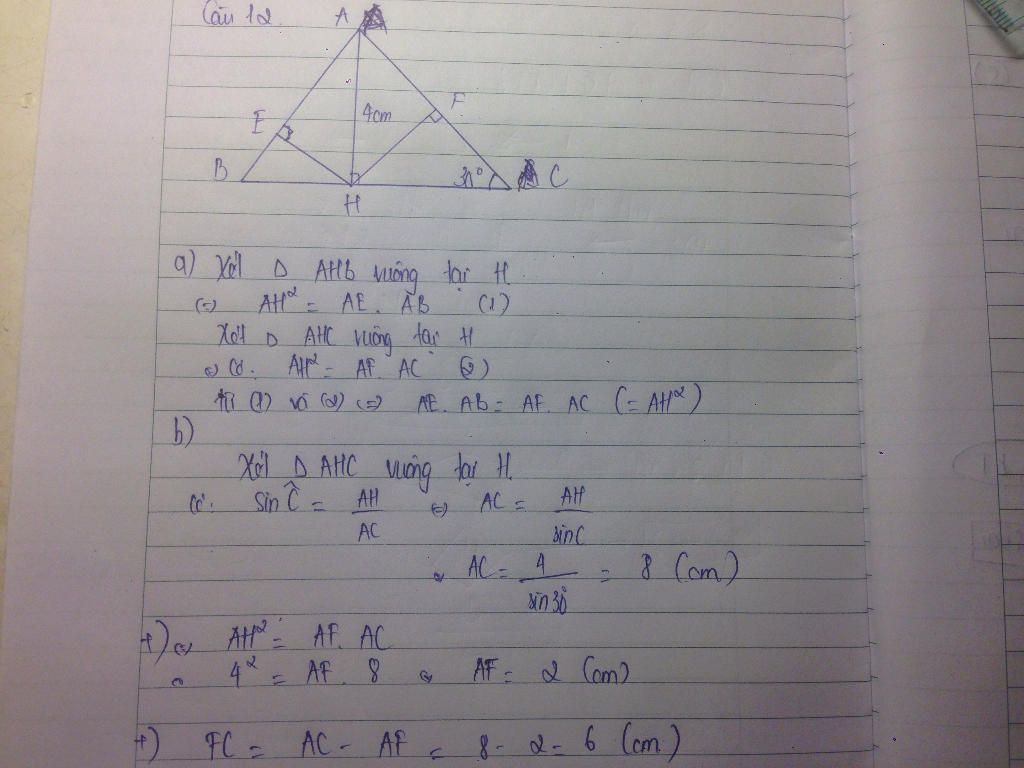 Câu 12.
A
E
F
4cm
B
30°
C
H
a) Xét Δ AHB vuông tại H
(=) AH² = AE. AB (1)
Xét Δ AHC vuông tại H
có: AH² = AF. AC (2)
từ (1) và (2) (=) AE. AB = AF. AC (= AH²)
b)
Xét Δ AHC vuông tại H
có: sin Ĉ = AH/AC (=) AC = AH/sinC
AC = 4/sin30° = 8 (cm)
+) (=) AH² = AF. AC
4² = AF. 8 AF = 2 (cm)
+) FC = AC - AF = 8 - 2 = 6 (cm)